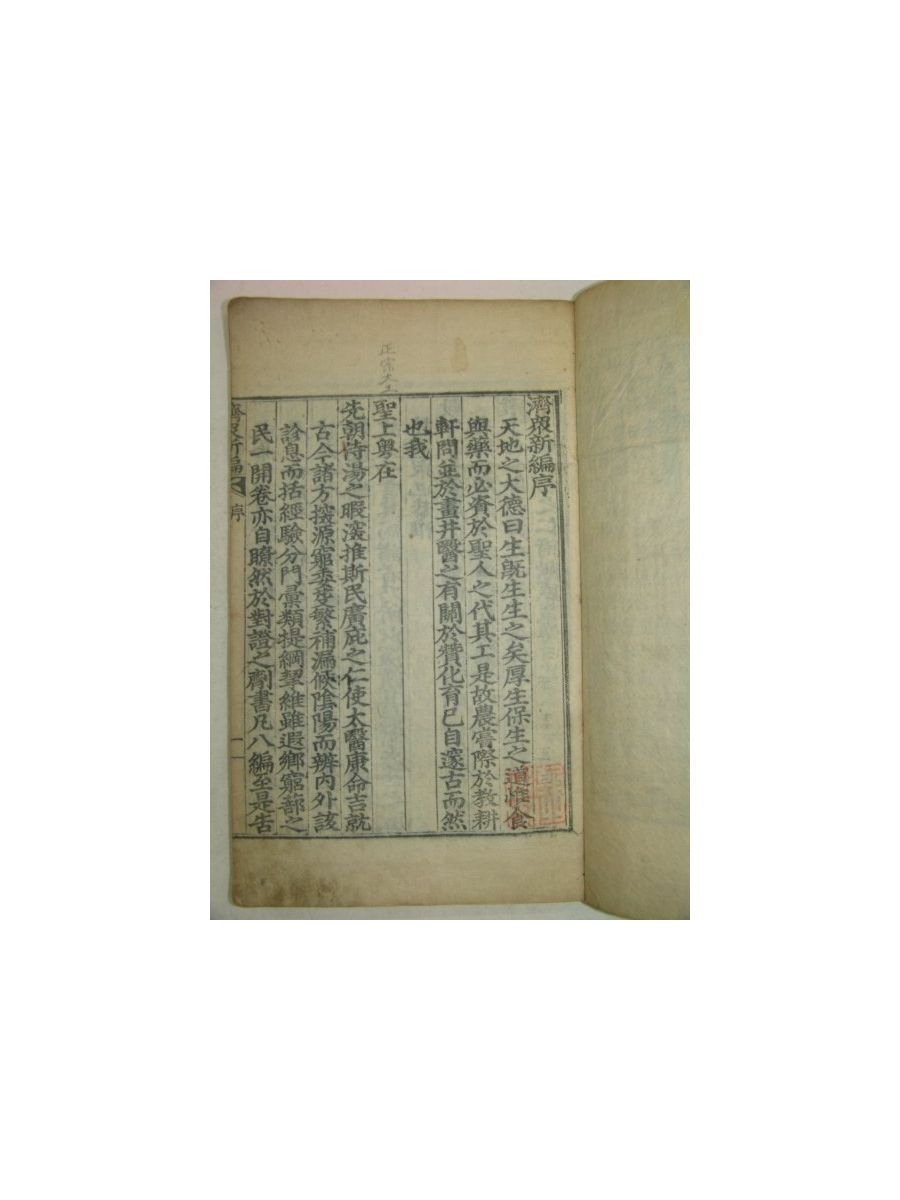 濟衆新編序
天地之大德曰生旣生生之矣厚生保生之道惟食
與藥而必資於聖人之代其工是故農嘗際於教耕
軒問並於畫井醫之有關於贊化育已自邃古而然
也我
正宗大王
聖上粤在
先朝侍湯之暇深推斯民廣庇之仁使太醫康命吉就
古今諸方探源窮委芟繁補漏候陰陽而辨內外該
診息而括經驗分門彙類提綱挈維雖遐鄕窮蔀之
民一開卷亦自瞭然於對證之劑書凡八編至是告
濟衆新編 序 一